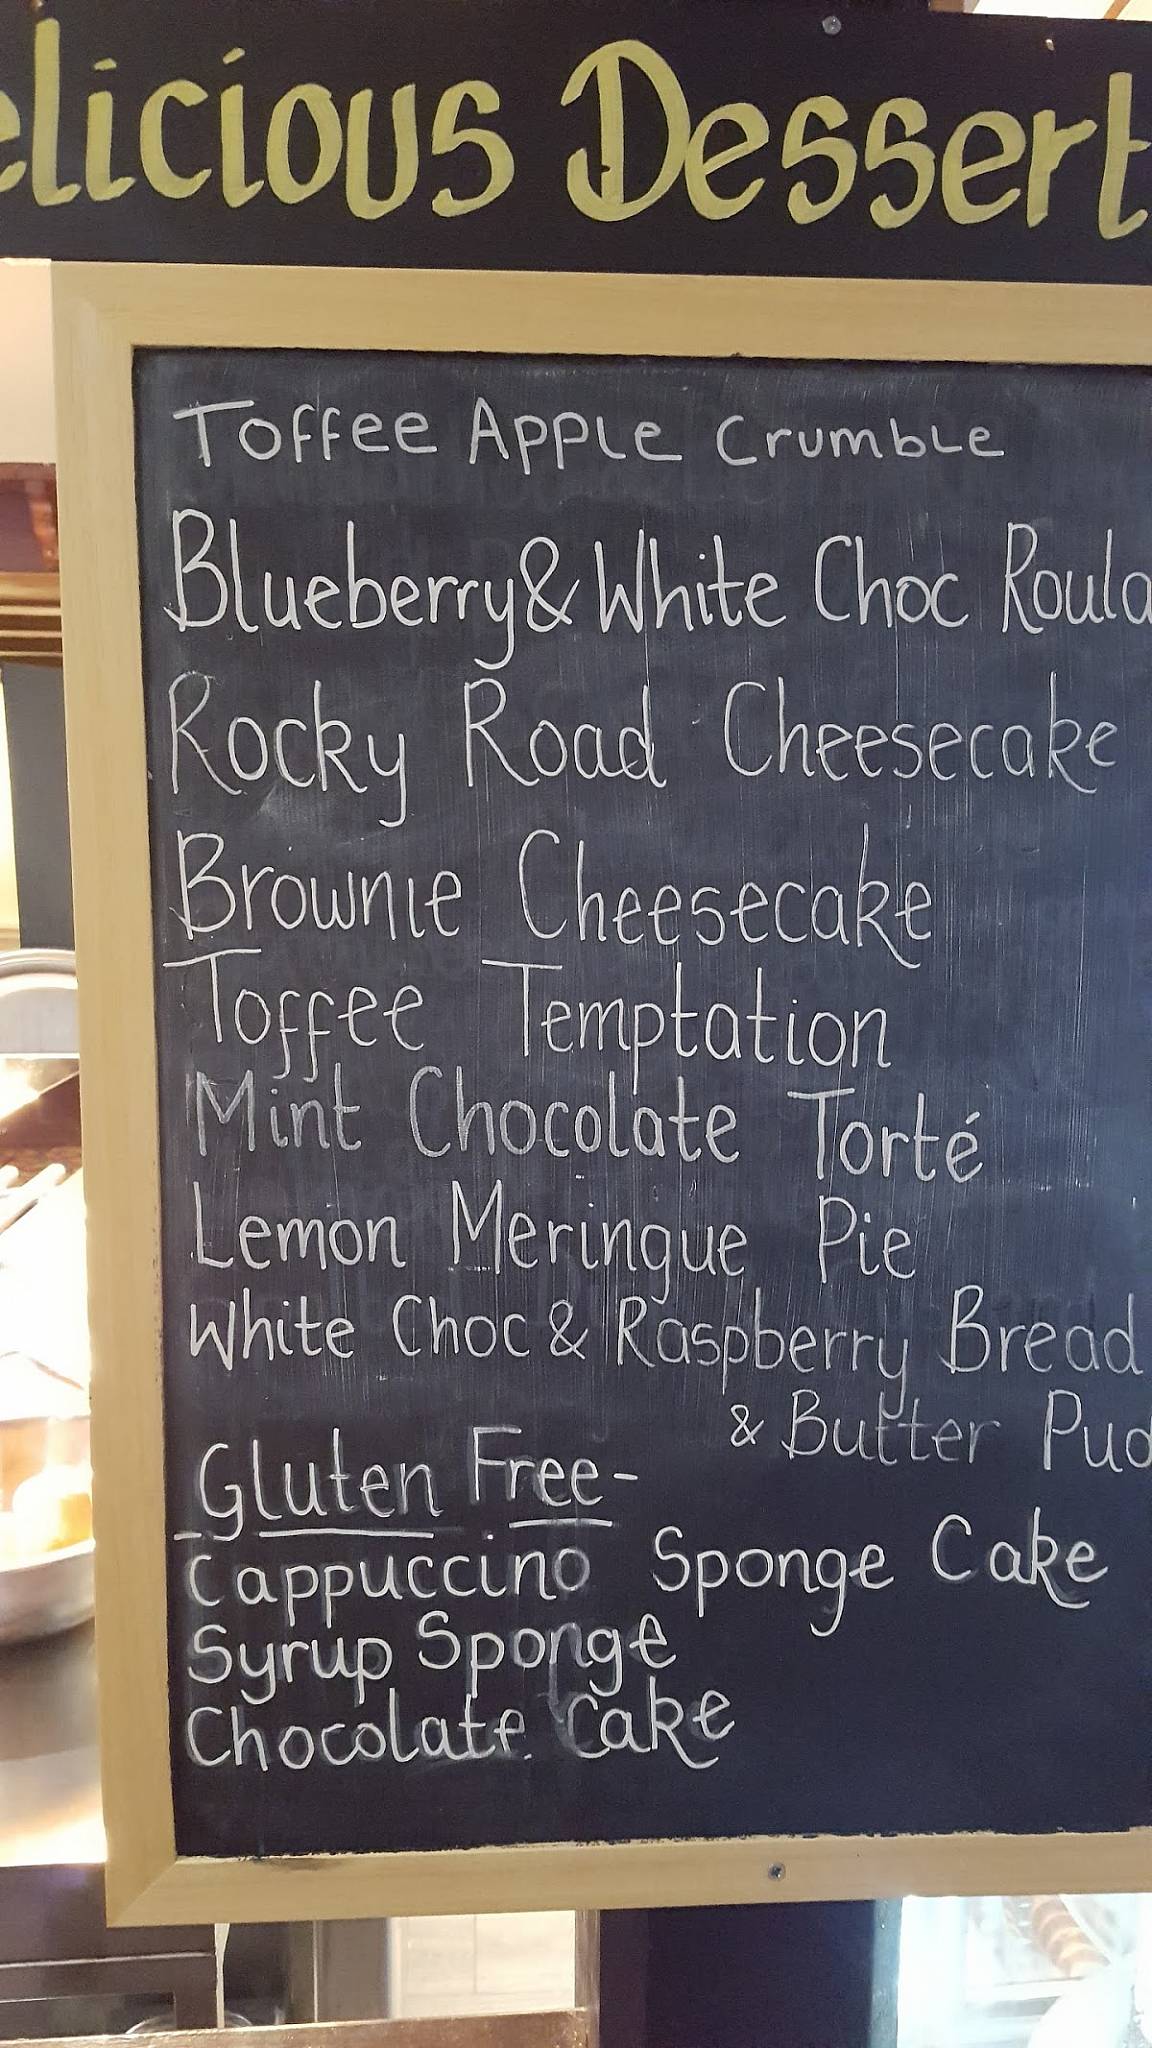 elicious Dessert
Toffee Apple Crumble
Blueberry & White Choc Roula
Rocky Road Cheesecake
Brownie Cheesecake
Toffee Temptation
Mint Chocolate Torté
Lemon Meringue Pie
White Choc & Raspberry Bread
& Butter Pud
Gluten Free-
Cappuccino Sponge Cake
Syrup Sponge
Chocolate Cake